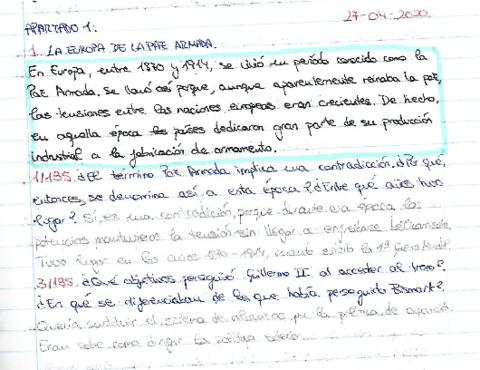 27-04-2020
APARTADO 1.
1. LA EUROPA DE LA PAZ ARMADA.
En Europa, entre 1870 y 1914, se vivió un período conocido como la
Paz Armada, se llamó así porque, aunque aparentemente reinaba la paz,
las tensiones entre las naciones europeas eran crecientes. De hecho,
en aquella época los países dedicaron gran parte de su producción
industrial a la fabricación de armamento.
1/135. ¿El término Paz Armada implica una contradicción? ¿Por qué,
entonces, se denomina así a esta época? ¿Entre qué años tuvo
lugar? Sí, es una contradicción, porque durante esa época las
potencias mantuvieron la tensión sin llegar a enfrentarse bélicamente.
Tuvo lugar en los años 1870-1914, cuando estalló la 1ª Guerra Mundial.
3/135. ¿Qué objetivos perseguía Guillermo II al acceder al trono?
¿En qué se diferenciaban de los que había perseguido Bismark?
Quería sustituir el sistema de alianzas por la política de
Eran sobre como dirigir la política exterior.